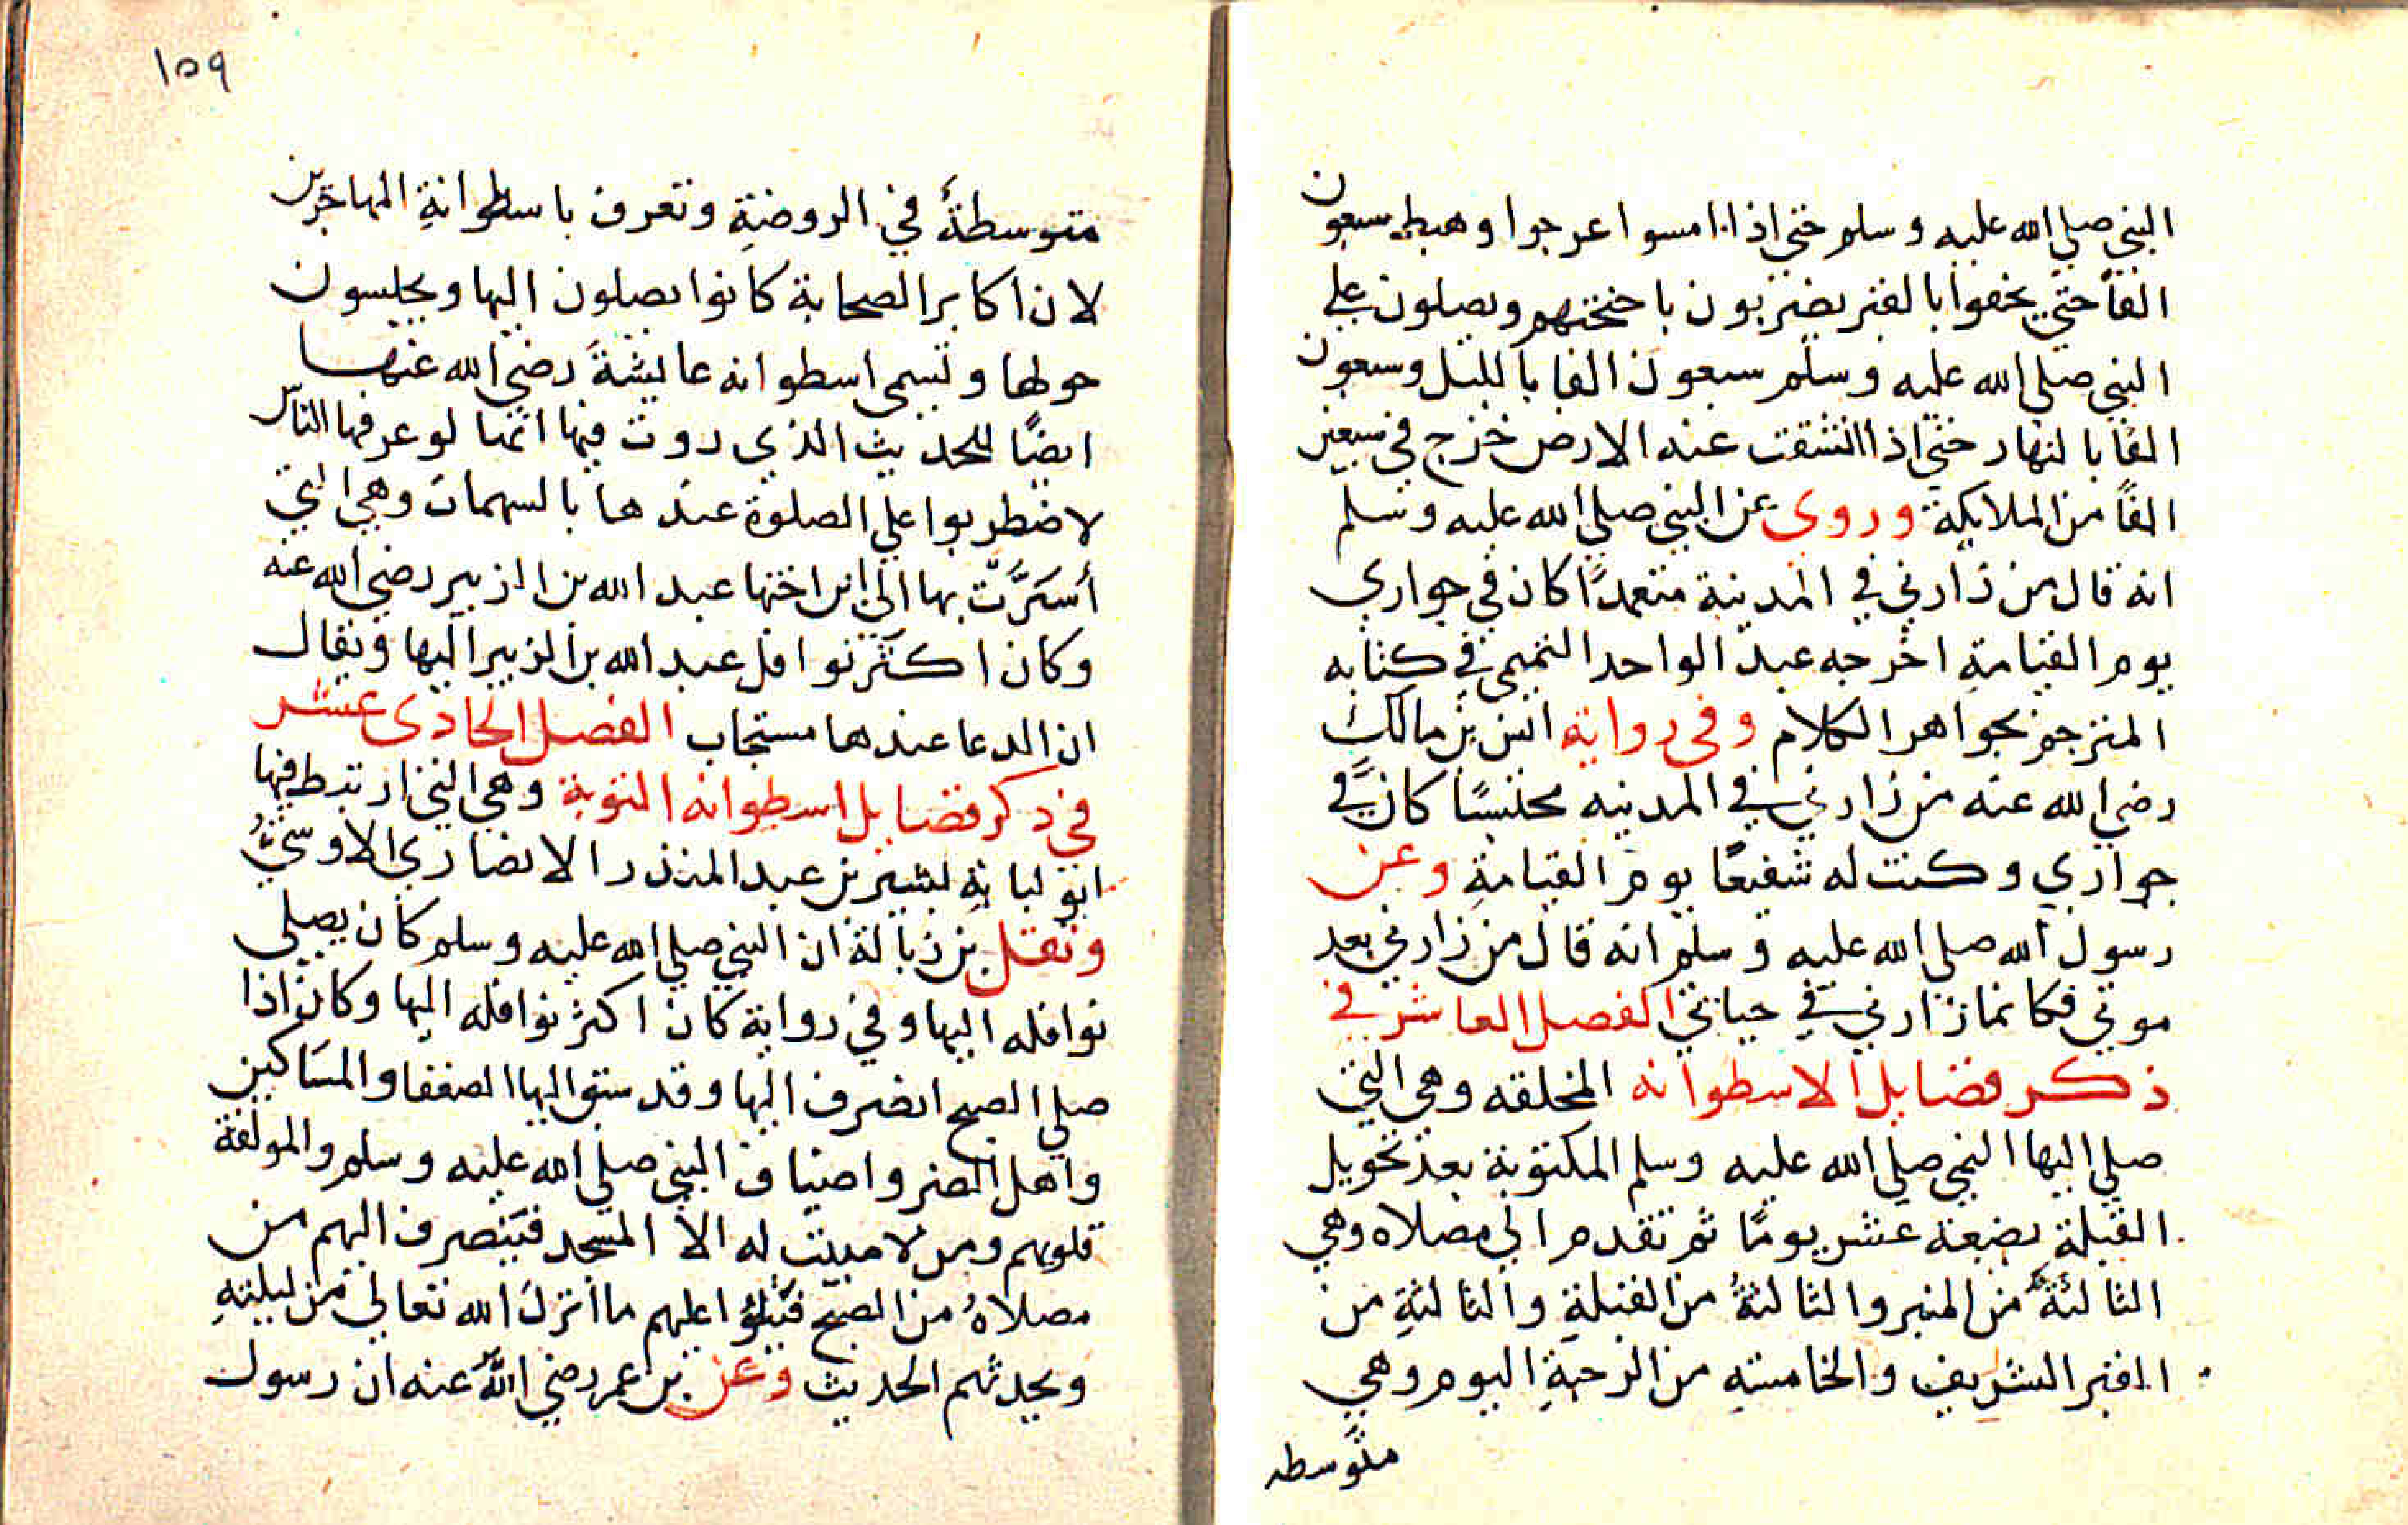 النبي صلي الله عليه وسلم حتي اذا امسوا عرجوا وهبط سبعون
الفاً حتي يحفوا بالقبر يضربون باجنحتهم ويصلون علي
النبي صلي الله عليه وسلم سبعون الفا بالليل وسبعون
الفا بالنهار حتي اذا انشقت عنه الارض خرج في سبعين
الفاً من الملايكة وروى عن النبي صلي الله عليه وسلم
انه قال من زارني في المدينة متعمداً كان في جواري
يوم القيامة اخرجه عبد الواحد التميمي في كتابه
المترجم بجواهر الكلام وفى رواية انس بن مالك
رضي الله عنه من زارني في المدينه محتسبًا كان في
جواري وكنت له شفيعًا يوم القيامة وعن
رسول الله صلي الله عليه وسلم انه قال من زارني بعد
موتي فكانما زارني في حياتي الفصل العاشر في
ذكر فضايل الاسطوانه المخلقه وهي التي
صلي اليها النبي صلي الله عليه وسلم المكتوبة بعد تحويل
القبلة بضعة عشر يومًا ثم تقدم الي مصلاه وهي
الثالثةُ من المنبر والثالثةُ من القبلةِ والثالثةِ من
القبر الشريف والخامسة من الرحبةِ اليوم وهي
متوسطه
١٥٩
متوسطةً في الروضةِ وتعرف باسطوانةِ المهاجرين
لان اكابر الصحابة كانوا يصلون اليها ويجلسون
حولها وتسمى اسطوانه عايشةَ رضي الله عنها
ايضًا للحديث الذي روت فيها انها لو عرفها الناس
لاضطربوا علي الصلوة عندها بالسهمان وهي التي
أسَرَّت بها الي ابن اختها عبد الله بن الزبير رضي الله عنه
وكان اكثر نوافل عبد الله بن الزبير اليها ويقال
ان الدعا عندها مستجاب الفصل الحادى عشر
في ذكر فضايل اسطوانه التوبة وهي التي ارتبط فيها
ابو لبابةِ بشير بن عبد المنذر الانصاري الاوسيُّ
ونقل بن زبالة ان النبي صلي الله عليه وسلم كان يصلي
نوافله اليها وفي رواية كان اكثر نوافله اليها وكان اذا
صلي الصبح انصرف اليها وقد سبق اليها الضعفا والمسَاكين
واهل الضر واضياف النبي صلي الله عليه وسلم والمولفة
قلوبهم ومن لا مبيت له الا المسجد فيَنصرف اليهم من
مصلاهُ من الصبح فيَتلوُا عليهم ما انزل الله تعالي من ليلتهِ
ويحدثهم الحديث وعن بن عمر رضي اللهُ عنه ان رسول